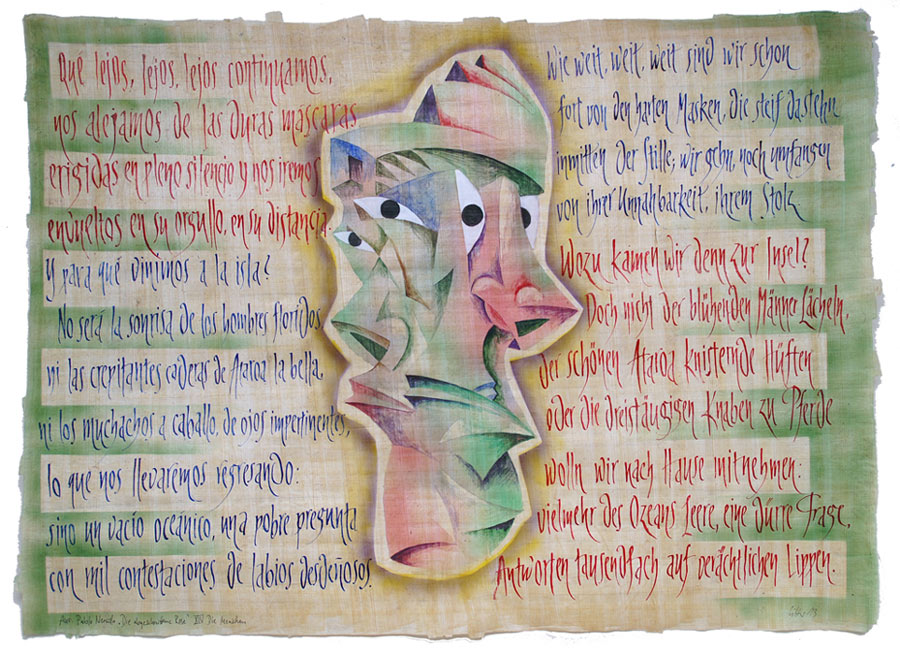 Qué lejos, lejos, lejos continuamos,
nos alejamos de las duras máscaras
erigidas en pleno silencio y nos iremos
envueltos en su orgullo, en su distancia.
Y para qué vinimos a la isla?
No será la sonrisa de los hombres floridos
ni las crepitantes caderas de Ataroa la bella,
ni los muchachos a caballo, de ojos impertinentes,
lo que nos llevaremos regresando:
sino un vacío oceánico, una pobre pregunta
con mil contestaciones de labios desdeñosos.
Wie weit, weit, weit sind wir schon
fort von den harten Masken, die steif dastehn
inmitten der Stille; wir gehn, noch umfangen
von ihrer Unnahbarkeit, ihrem Stolz.
Wozu kamen wir denn zur Insel?
Doch nicht der blühenden Männer Lächeln,
der schönen Ataroa knisternde Hüften
oder die dreistäugigen Knaben zu Pferde
wolln wir nach Hause mitnehmen:
vielmehr des Ozeans Leere, eine dürre Frage,
Antworten tausendfach auf verächtlichen Lippen.
Aus: Pablo Neruda „Die Rose" Die Menschen